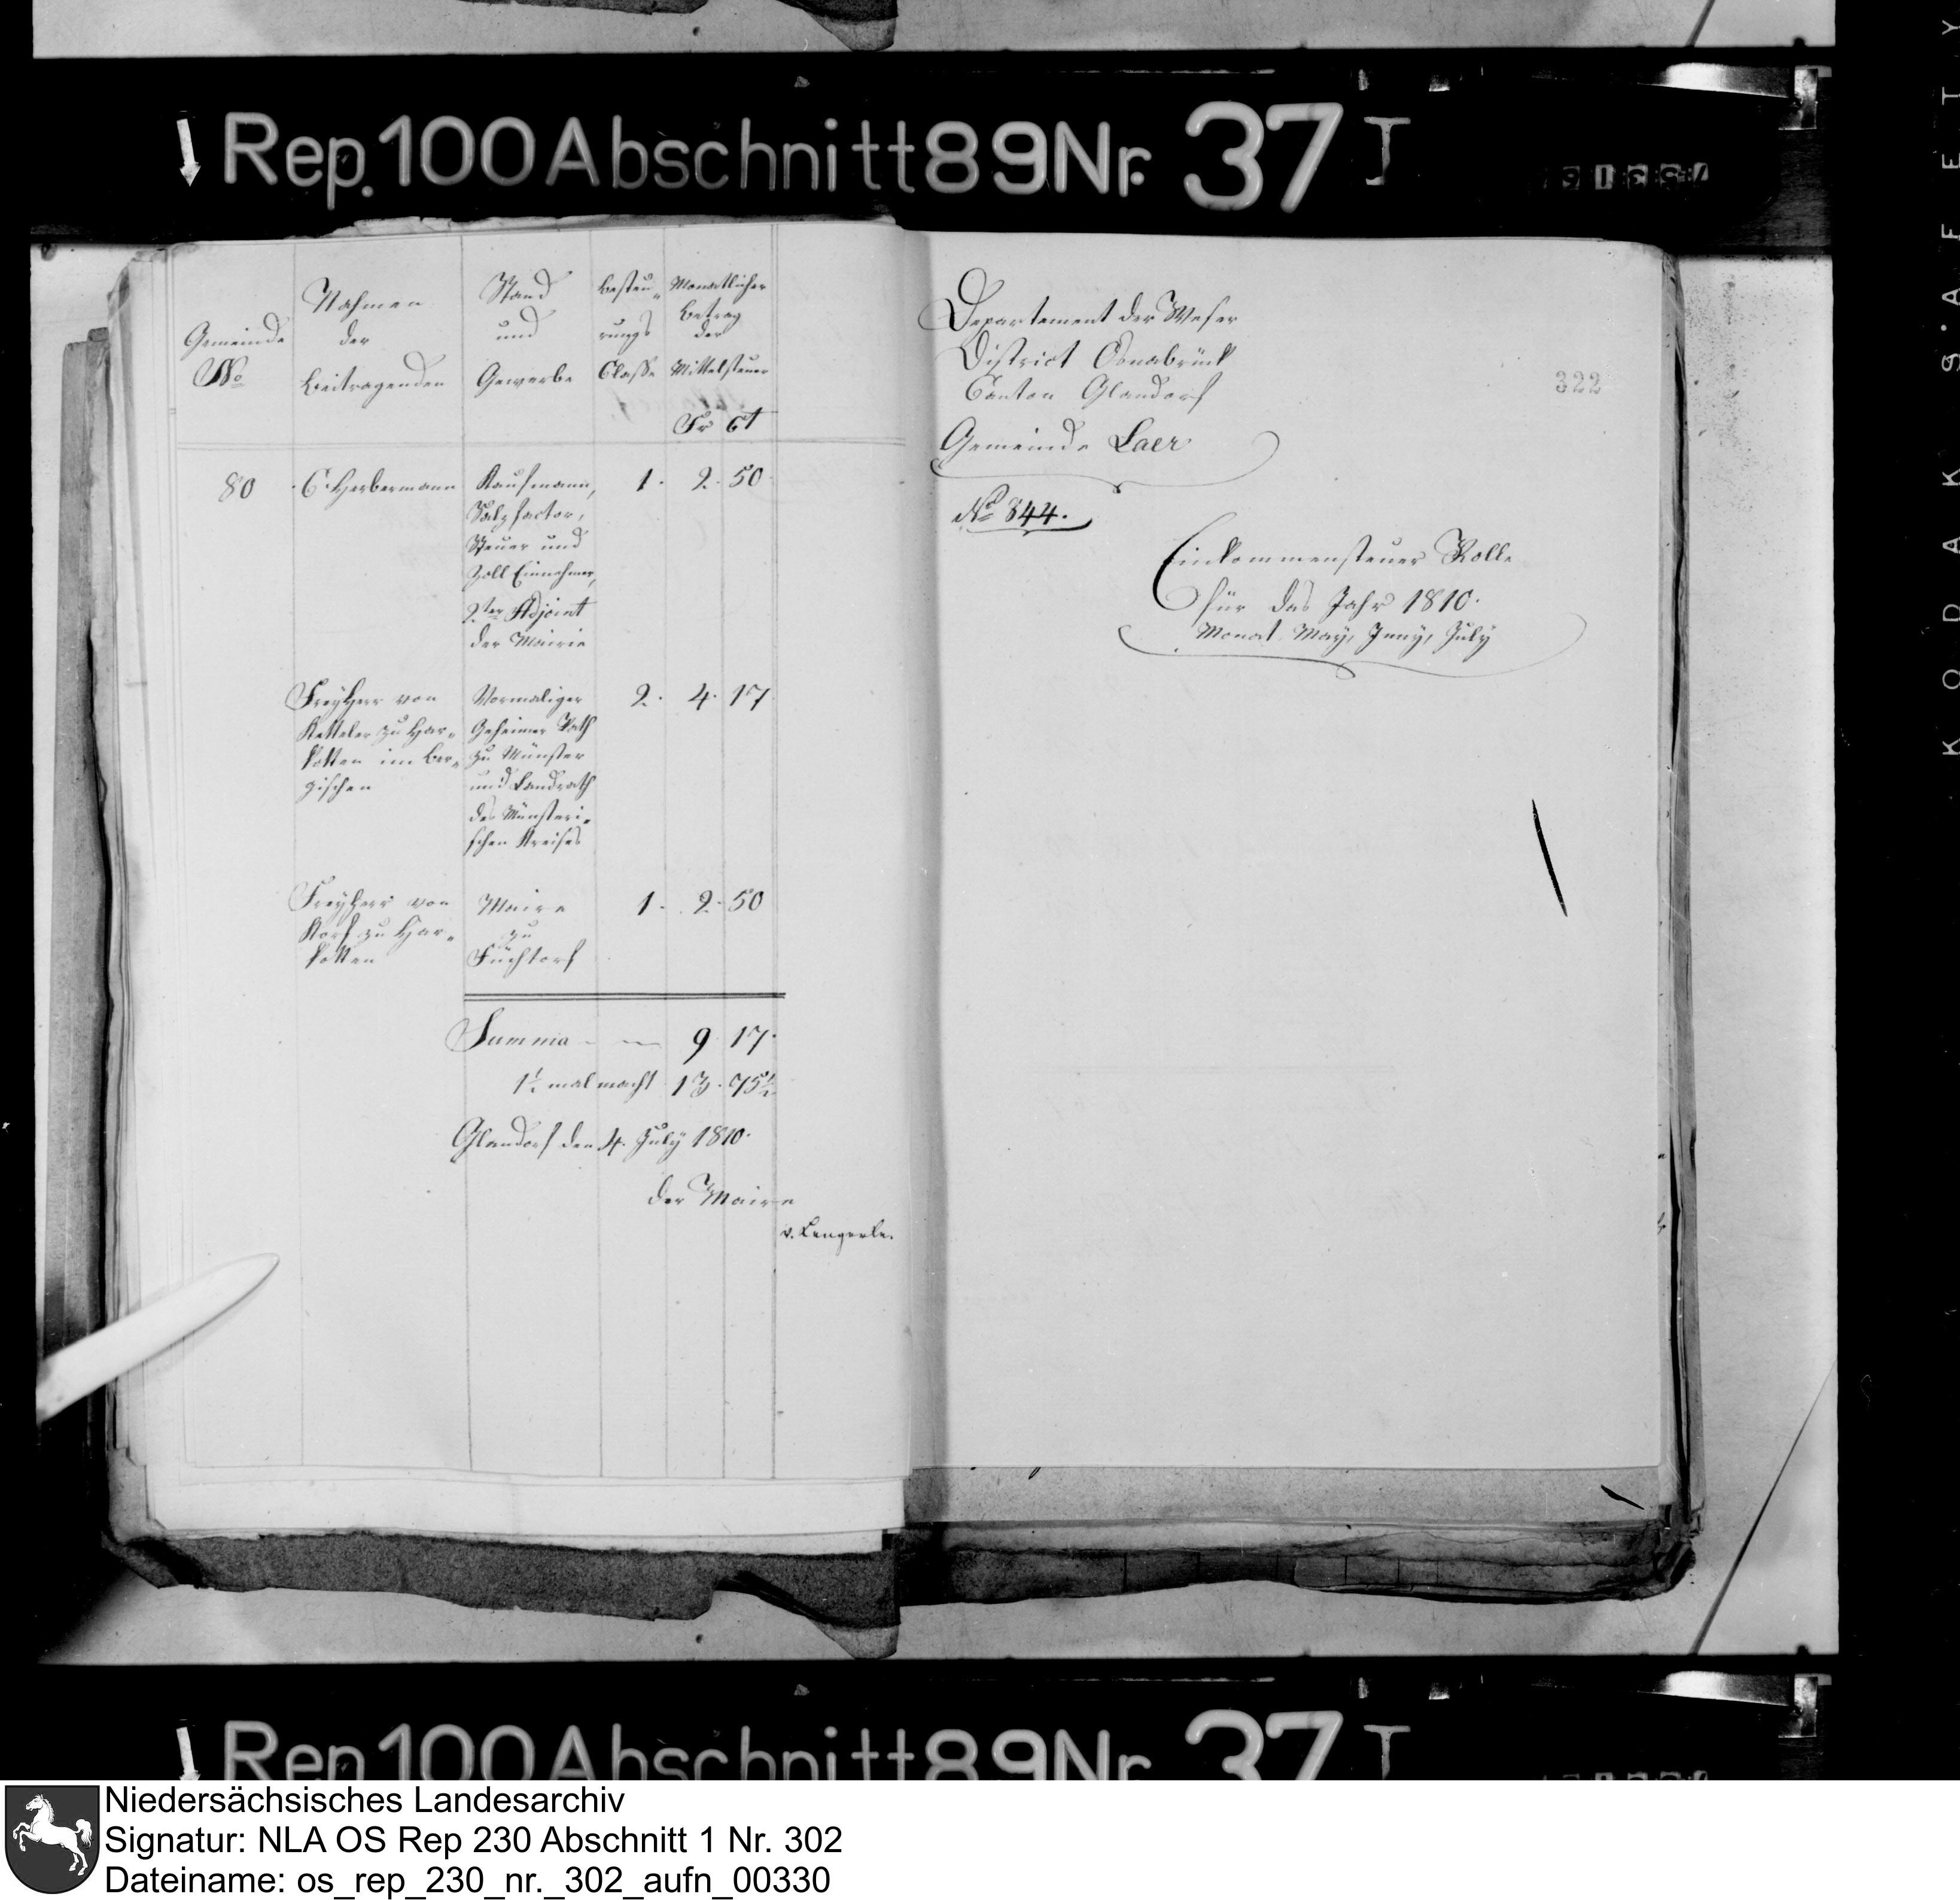 Rep. 100 Abschnitt 89 Nr. 37 I
Gemeinde
No
Nahmen
der
Beitragenden
Stand
und
Gewerbe
Besteu„
rungs
Classe
Monatlicher
Betrag
der
Mittelsteuer
Fr Ct
80 C. Herbermann Kaufmann, 1. 2. 50.
Salzfactor,
Steuer und
Zoll Einnehmer,
2ter Adjoint
der Mairie
Freyherr von Vormaliger 2. 4. 17.
Ketteler zu Har„ Geheimer Rath
kotten im Ber„ zu Münster
gischen und Landrath
des Münsteri„
schen Kreises
Freyherr von Maire 1. 2. 50
Korf zu Har„ zu
kotten Füchtorf
Summa 9 17.
1½ mal macht 13. 75½
Glandorf den 4. July 1810.
der Maire
v. Lengerke.
Departement der Weser
District Osnabrück
Canton Glandorf
Gemeinde Laer
322
No 844.
Einkommensteuer Rolle
für das Jahr 1810.
Monat May, Juny, July
KODAK S.A.F.E.T.Y
Rep. 100 Abschnitt 89 Nr. 37 I
Niedersächsisches Landesarchiv
Signatur: NLA OS Rep 230 Abschnitt 1 Nr. 302
Dateiname: os_rep_230_nr._302_aufn_00330